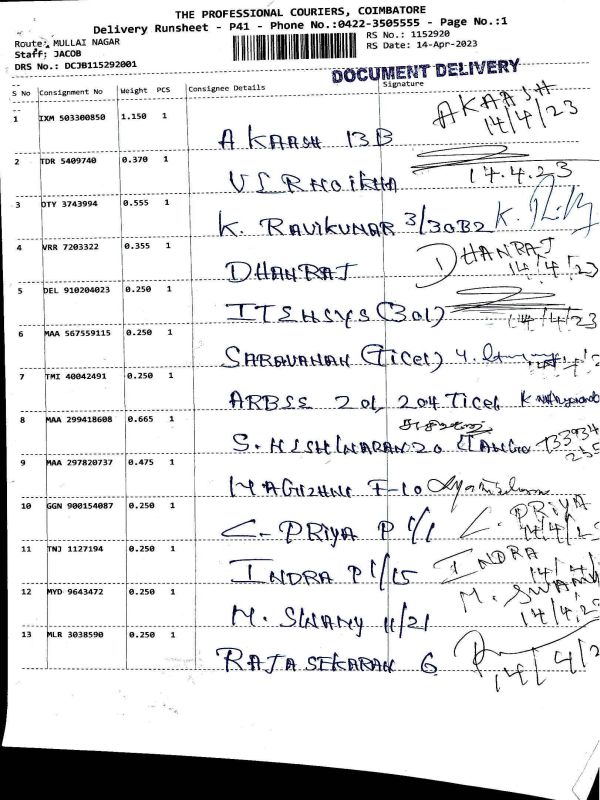 THE PROFESSIONAL COURIERS, COIMBATORE
Delivery Runsheet - P41 - Phone No.:0422-3505555 - Page No.:1
Route: MULLAI NAGAR RS No.: 1152920
Staff: JACOB RS Date: 14-Apr-2023
DRS No.: DCJB115292001
DOCUMENT DELIVERY
S No Consignment No Weight PCS Consignee Details Signature
1 IXM 503300850 1.150 1 AKAASH 13B AKAASH 14/4/23
2 TDR 5409740 0.370 1 14.4.23
3 OTY 3743994 0.555 1 K. RAVIKUMAR 3/30B2 K.
4 VRR 7203322 0.355 1 DHANRAJ DHANRAJ 14/4/23
5 DEL 910204023 0.250 1 (301) 14/4/23
6 MAA 567559115 0.250 1 SARAVANAN (Ticel)
7 TMI 40042491 0.250 1 201, 204 Ticel
8 MAA 299418608 0.665 1 20
9 MAA 297820737 0.475 1 F-10
10 GGN 900154087 0.250 1 C. PRIYA P 1/1 C. PRIYA 14/4/23
11 TNJ 1127194 0.250 1 INDRA P 1/15 INDRA 14/4/
12 MYD 9643472 0.250 1 M. SWAMY 11/21 M. SWAMY 14/4/23
13 MLR 3038590 0.250 1 RAJASEKARAN 6 14/4/2